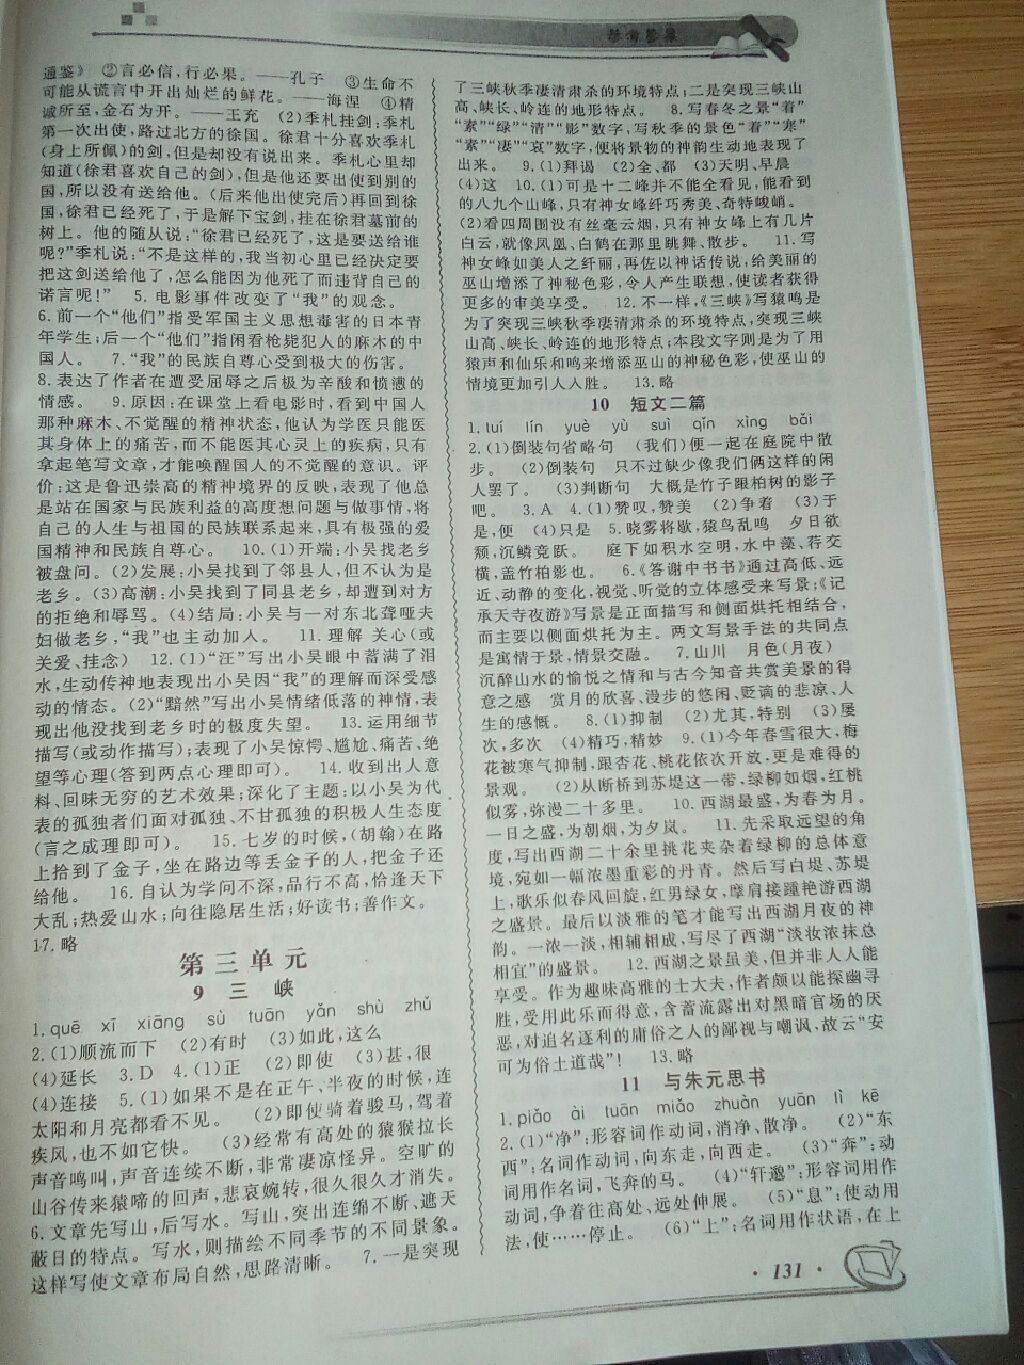 参考答案
通鉴》 ②言必信,行必果。——孔子 ③生命不
可能从谎言中开出灿烂的鲜花。——海涅 ④精
诚所至,金石为开。——王充 (2)季札挂剑:季札
第一次出使,路过北方的徐国。徐君十分喜欢季札
(身上所佩)的剑,但是却没有说出来。季札心里却
知道(徐君喜欢自己的剑),但是他还要出使到别的
国,所以没有送给他。(后来他出使完后)再回到徐
国,徐君已经死了,于是解下宝剑,挂在徐君墓前的
树上。他的随从说:“徐君已经死了,这是要送给谁
呢?”季札说:“不是这样的,我当初心里已经决定要
把这剑送给他了,怎么能因为他死了而违背自己的
诺言呢!” 5.电影事件改变了“我”的观念。
6.前一个“他们”指受军国主义思想毒害的日本青
年学生;后一个“他们”指闲看枪毙犯人的麻木的中
国人。 7.“我”的民族自尊心受到极大的伤害。
8.表达了作者在遭受屈辱之后极为辛酸和愤懑的
情感。 9.原因:在课堂上看电影时,看到中国人
那种麻木、不觉醒的精神状态,他认为学医只能医
其身体上的痛苦,而不能医其心灵上的疾病,只有
拿起笔写文章,才能唤醒国人的不觉醒的意识。评
价:这是鲁迅崇高的精神境界的反映,表现了他总
是站在国家与民族利益的高度想问题与做事情,将
自己的人生与祖国的民族联系起来,具有极强的爱
国精神和民族自尊心。 10.(1)开端:小吴找老乡
被盘问。(2)发展:小吴找到了邻县人,但不认为是
老乡。(3)高潮:小吴找到了同县老乡,却遭到对方
的拒绝和辱骂。(4)结局:小吴与一对东北聋哑夫
妇做老乡,“我”也主动加入。 11.理解 关心(或
关爱、挂念) 12.(1)“汪”写出小吴眼中蓄满了泪
水,生动传神地表现出小吴因“我”的理解而深受感
动的情态。(2)“黯然”写出小吴情绪低落的神情,表
现出他没找到老乡时的极度失望。 13.运用细节
描写(或动作描写);表现了小吴惊愕、尴尬、痛苦、绝
望等心理(答到两点心理即可)。 14.收到出人意
料、回味无穷的艺术效果;深化了主题:以小吴为代
表的孤独者们面对孤独、不甘孤独的积极人生态度
(言之成理即可)。 15.七岁的时候,(胡翰)在路
上拾到了金子,坐在路边等丢金子的人,把金子还
给他。 16.自认为学问不深,品行不高,恰逢天下
大乱;热爱山水;向往隐居生活;好读书;善作文。
17.略
第三单元
9 三 峡
1.quē xī xiāng sù tuān yǎn shù zhǔ
2.(1)顺流而下 (2)有时 (3)如此,这么
(4)延长 3.D 4.(1)正 (2)即使 (3)甚,很
(4)连接 5.(1)如果不是在正午、半夜的时候,连
太阳和月亮都看不见。 (2)即使骑着骏马,驾着
疾风,也不如它快。 (3)经常有高处的猿猴拉长
声音鸣叫,声音连续不断,非常凄凉怪异。空旷的
山谷传来猿啼的回声,悲哀婉转,很久很久才消失。
6.文章先写山,后写水。写山,突出连绵不断、遮天
蔽日的特点。写水,则描绘不同季节的不同景象。
这样写使文章布局自然,思路清晰。 7.一是突现
了三峡秋季凄清肃杀的环境特点;二是突现三峡山
高、峡长、岭连的地形特点。 8.写春冬之景“着”
“素”“绿”“清”“影”数字,写秋季的景色“着”“寒”
“素”“凄”“哀”数字,便将景物的神韵生动地表现了
出来。 9.(1)拜谒 (2)全,都 (3)天明,早晨
(4)这 10.(1)可是十二峰并不能全看见,能看到
的八九个山峰,只有神女峰纤巧秀美、奇特峻峭。
(2)看四周围没有丝毫云烟,只有神女峰上有几片
白云,就像凤凰、白鹤在那里跳舞、散步。 11.写
神女峰如美人之纤丽,再佐以神话传说;给美丽的
巫山增添了神秘色彩,令人产生联想,使读者获得
更多的审美享受。 12.不一样,《三峡》写猿鸣是
为了突现三峡秋季凄清肃杀的环境特点,突现三峡
山高、峡长、岭连的地形特点;本段文字则是为了用
猿声和仙乐和鸣来增添巫山的神秘色彩,使巫山的
情境更加引人入胜。 13.略
10 短文二篇
1.tuí lín yuè yù suì qǐn xìng bǎi
2.(1)倒装句省略句 (我们)便一起在庭院中散
步。 (2)倒装句 只不过缺少像我们俩这样的闲
人罢了。 (3)判断句 大概是竹子跟柏树的影子
吧。 3.A 4.(1)赞叹,赞美 (2)争着 (3)于
是,便 (4)只是 5.晓雾将歇,猿鸟乱鸣 夕日欲
颓,沉鳞竞跃。 庭下如积水空明,水中藻、荇交
横,盖竹柏影也。 6.《答谢中书书》通过高低、远
近、动静的变化,视觉、听觉的立体感受来写景;《记
承天寺夜游》写景是正面描写和侧面烘托相结合,
而主要以侧面烘托为主。两文写景手法的共同点
是寓情于景,情景交融。 7.山川 月色(月夜)
沉醉山水的愉悦之情和与古今知音共赏美景的得
意之感 赏月的欣喜、漫步的悠闲、贬谪的悲凉、人
生的感慨。 8.(1)抑制 (2)尤其,特别 (3)屡
次,多次 (4)精巧,精妙 9.(1)今年春雪很大,梅
花被寒气抑制,跟杏花、桃花依次开放,更是难得的
景观。 (2)从断桥到苏堤这一带,绿柳如烟,红桃
似雾,弥漫二十多里。 10.西湖最盛,为春为月。
一日之盛,为朝烟,为夕岚。 11.先采取远望的角
度,写出西湖二十余里桃花夹杂着绿柳的总体意
境,宛如一幅浓墨重彩的丹青。然后写白堤、苏堤
上,歌乐似春风回旋,红男绿女,摩肩接踵艳游西湖
之盛景。最后以淡雅的笔才能写出西湖月夜的神
韵。一浓一淡,相辅相成,写尽了西湖“淡妆浓抹总
相宜”的盛景。 12.西湖之景虽美,但并非人人能
享受。作为趣味高雅的士大夫,作者颇以能探幽寻
胜,受用此乐而得意,含蓄流露出对黑暗官场的厌
恶,对追名逐利的庸俗之人的鄙视与嘲讽,故云“安
可为俗士道哉”! 13.略
11 与朱元思书
1.piǎo ài tuān miǎo zhuàn yuān lì kē
2.(1)“净”:形容词作动词,消净、散净。 (2)“东
西”:名词作动词,向东走,向西走。 (3)“奔”:动
词用作名词,飞奔的马。 (4)“轩邈”:形容词用作
动词,争着往高处、远处伸展。 (5)“息”:使动用
法,使……停止。 (6)“上”:名词用作状语,在上
· 131 ·